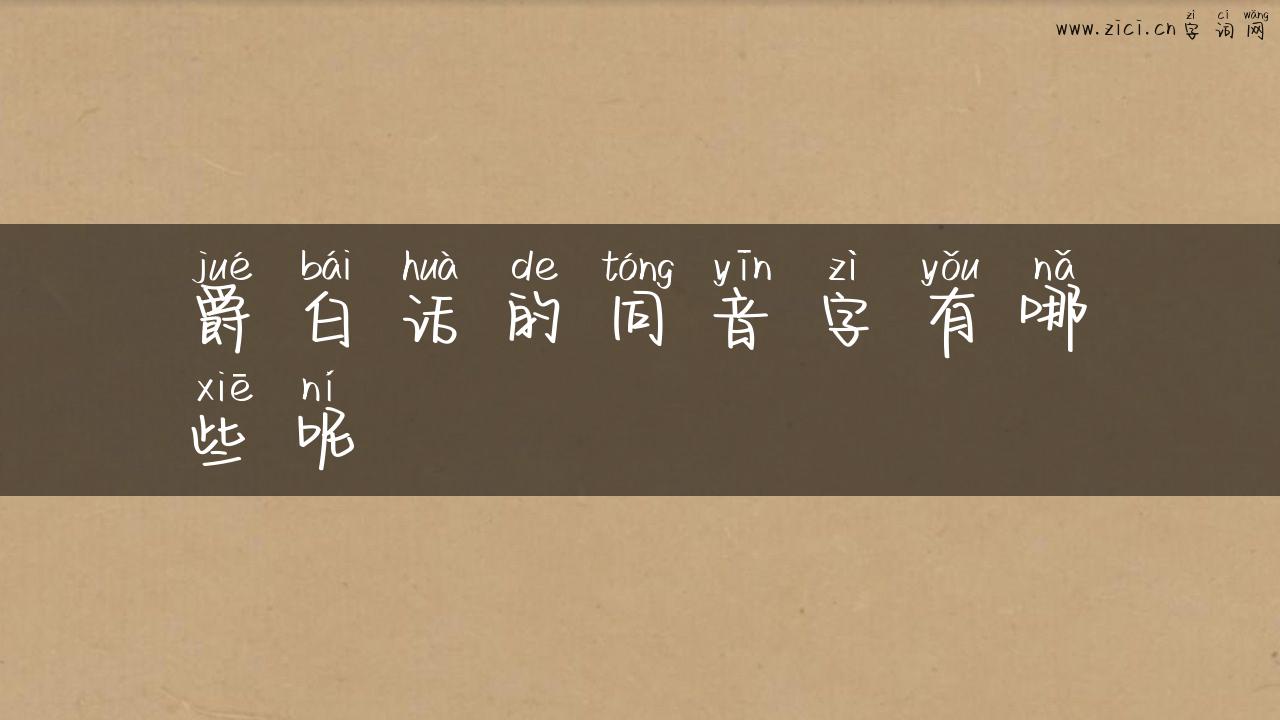 zì cí wǎng
www.zici.cn 字词网
jué bái huà de tóng yīn zì yǒu nǎ
爵白话的同音字有哪
xiē ní
些呢